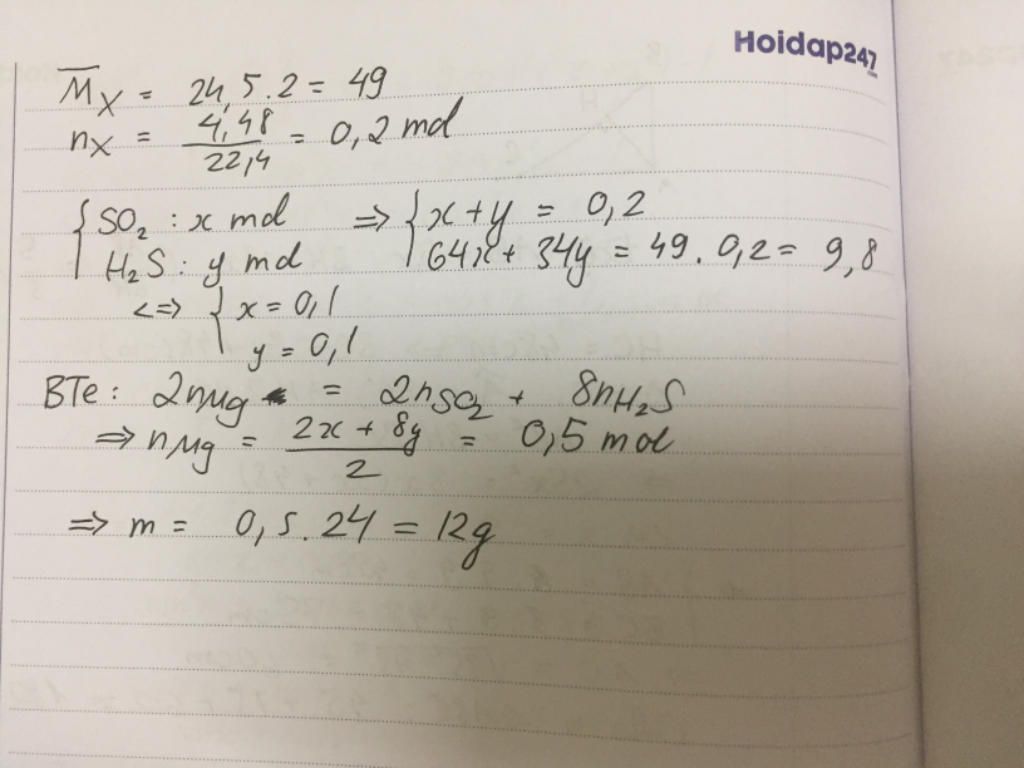 Hoidap247
M̅X = 24,5.2 = 49
nX = 4,48/22,4 = 0,2 mol
{ SO2 : x mol => { x + y = 0,2
H2S : y mol 64x + 34y = 49.0,2 = 9,8
<=> { x = 0,1
y = 0,1
BTe : 2nMg = 2nSO2 + 8nH2S
=> nMg = (2x + 8y)/2 = 0,5 mol
=> m = 0,5.24 = 12g